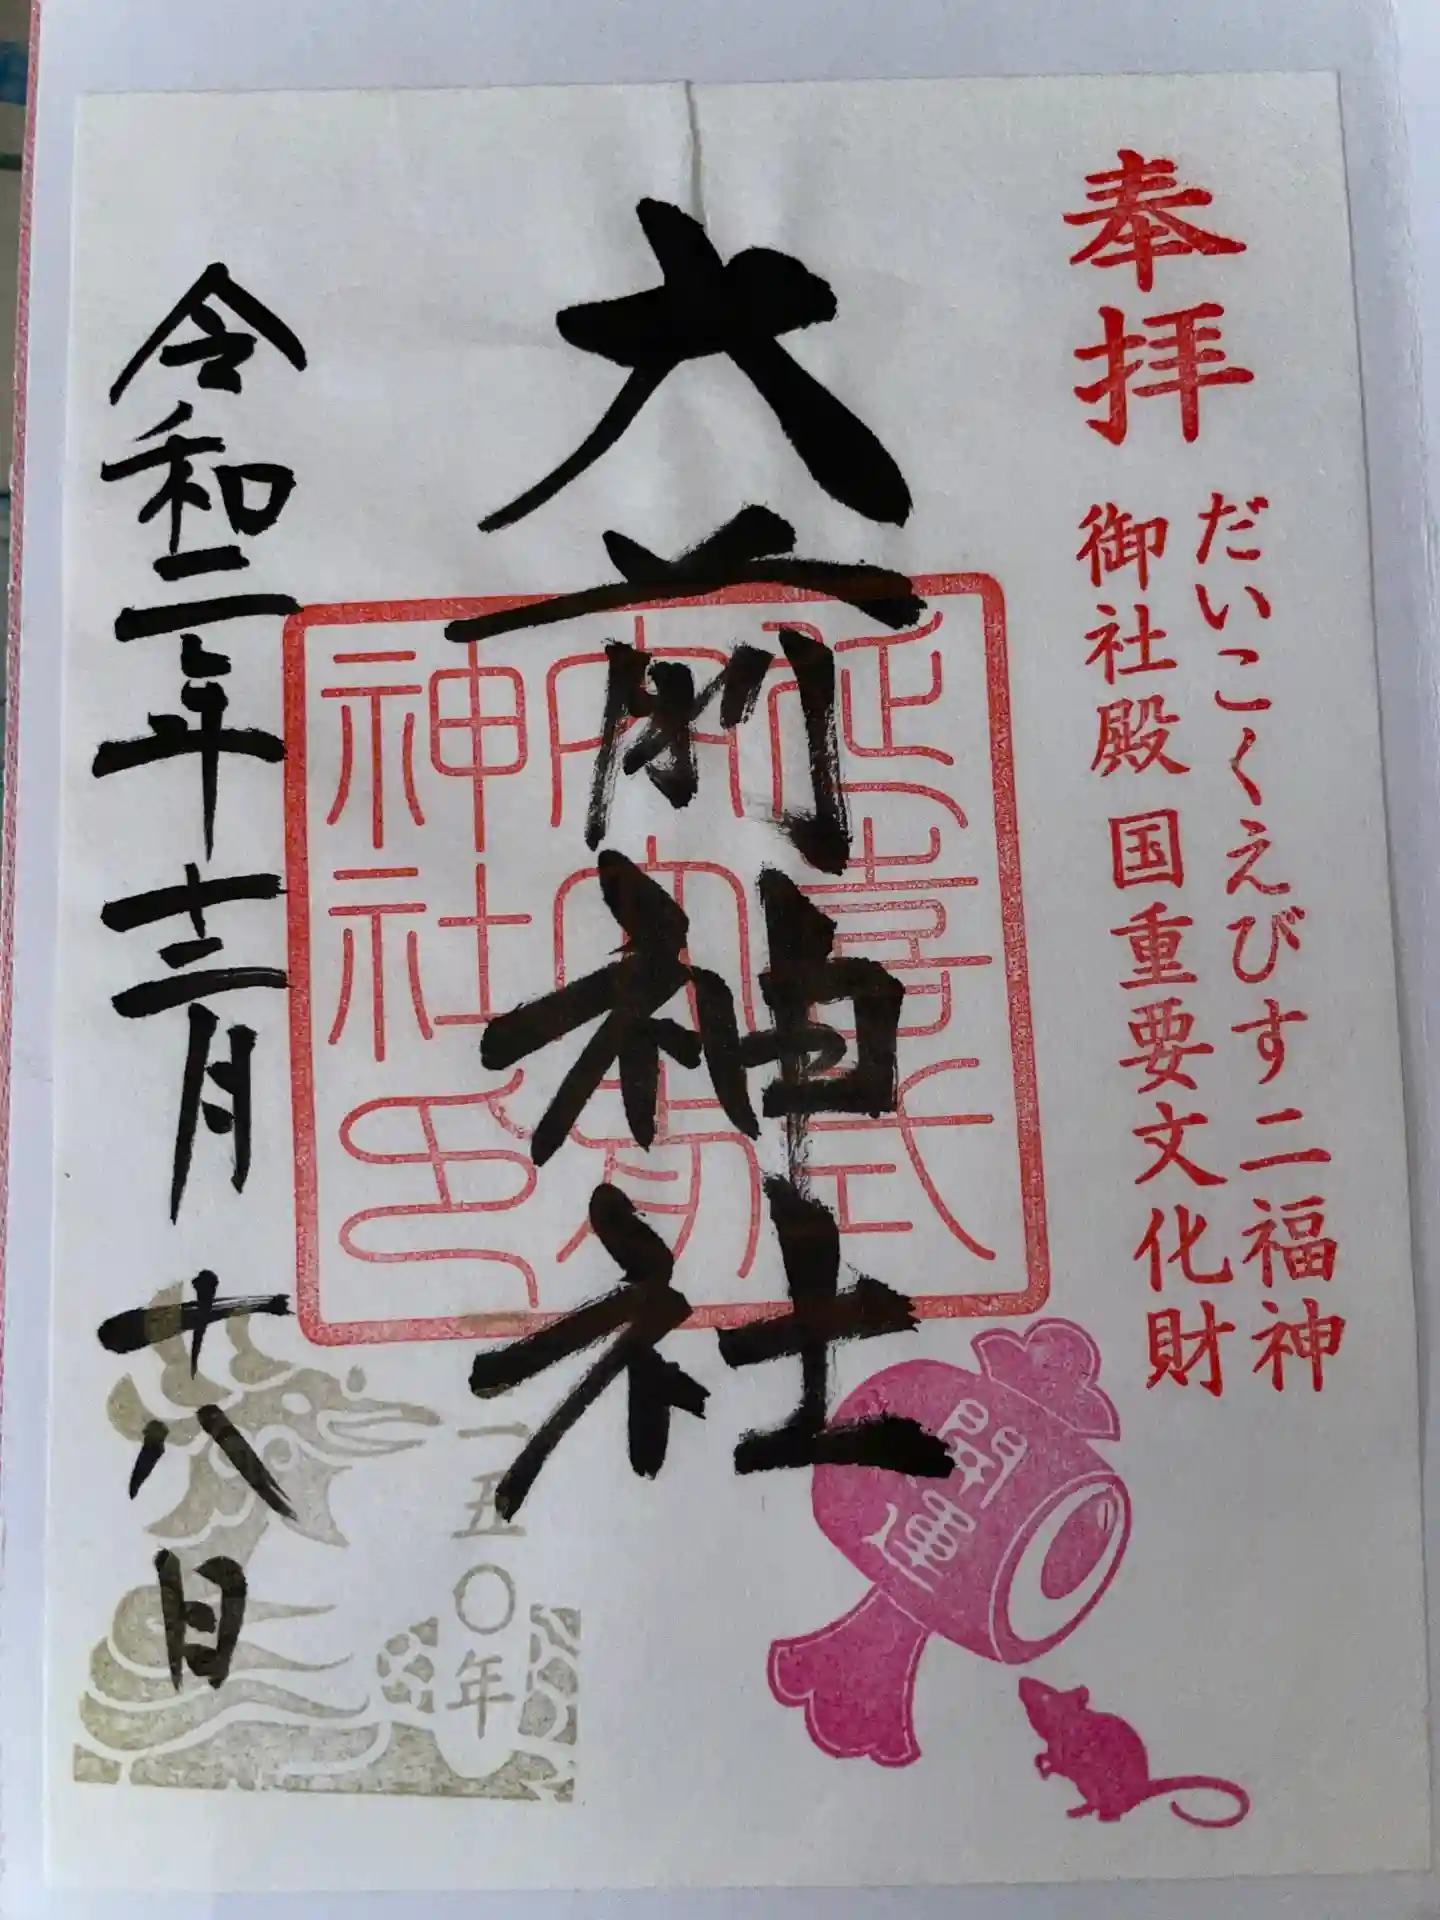 奉拝
だいこくえびす二福神
御社殿 国重要文化財
大前神社
延喜式
内大前
神社印
開運
令和二年十二月十八日
一五〇年